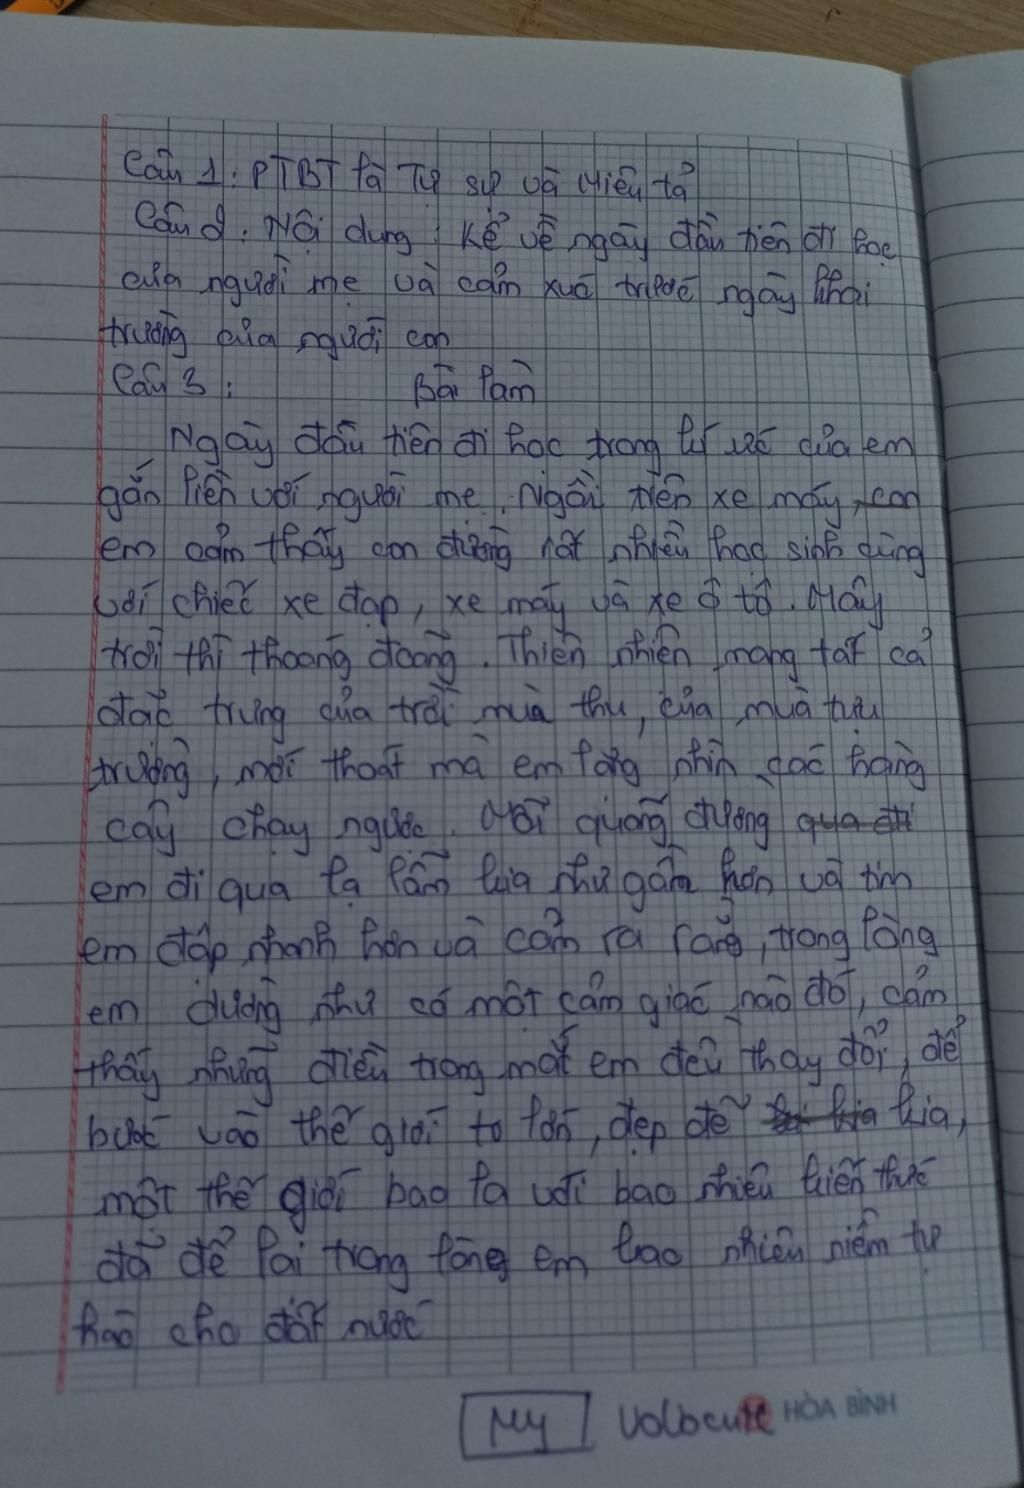 Câu 1: PTBT là Tự sự và Miêu tả
Câu 2: Nội dung: Kể về ngày đầu tiên đi học
của người mẹ và cảm xúc trước ngày khai
trường của người con
Câu 3: Bài làm
Ngày đầu tiên đi học trong kí ức của em
gắn liền với người mẹ. Ngồi trên xe máy, con
em cảm thấy con đường rất nhiều học sinh cùng
với chiếc xe đạp, xe máy và xe ô tô. Mây
trời thì thoáng đoãng. Thiên nhiên mang tất cả
đặc trưng của trời mùa thu, của mùa tựu
trường, mới thoát mà em lẳng nhìn các hàng
cây chạy ngược. Mỗi quãng đường qua đi
em đi qua lạ lẫm kia như gần hơn và tim
em đập nhanh hơn và cảm ra rằng, trong lòng
em dường như có một cảm giác nào đó, cảm
thấy những điều trong mắt em đều thay đổi, để
bước vào thế giới to lớn, đẹp đẽ kia,
một thế giới bao la với bao nhiêu kiến thức
đã để lại trong lòng em bao nhiêu niềm tự
hào cho đất nước
My Volocute HÒA BÌNH